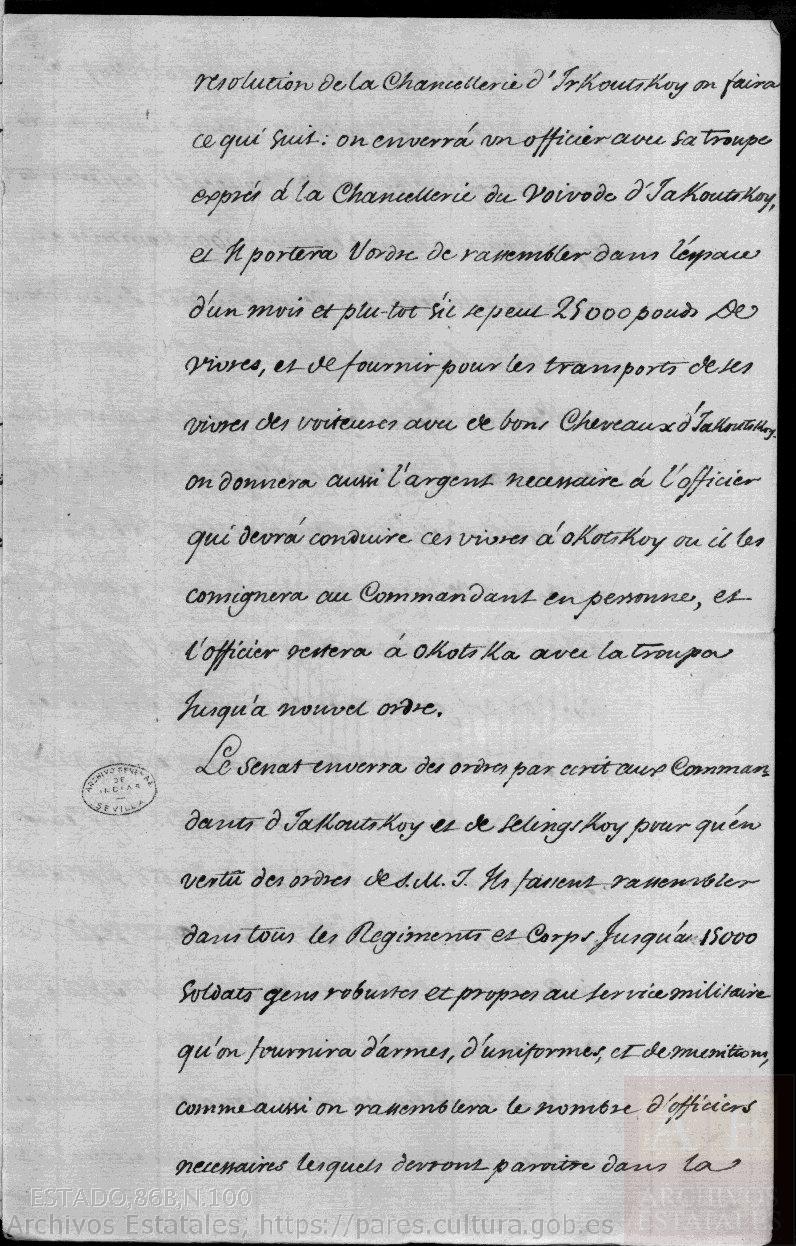 resolution de la Chancellerie d'Irkoutskoy on faira
ce qui suit: on enverrá un officier avec sa troupe
exprés á la Chancellerie du Voivode d'Jakoutskoy,
et Il portera l'ordre de rassembler dans l'éspace
d'un mois et plu-tot s'il se peut 25000 pouds De
vivres, et de fournir pour les transports de ses
vivres des voiteuses avec de bons Cheveaux d'Jakoutskoy.
on donnera aussi l'argent necessaire á l'officier
qui devrá conduire ces vivres á okotskoy ou il les
consignera au Commandant en personne, et
l'officier restera á okotska avec la troupa
Jusqu'a nouvel ordre.
Le Senat enverra des ordres par ecrit aux Comman=
dants d'Jakoutskoy et de Selingskoy pour qu'én
vertû des ordres de S. M. I. Ils fassent rassembler
dans tous les Regiments et Corps Jusqu'a 15000
Soldats gens robustes et propres au service militaire
qu'on fournira d'armes, d'uniformes, et de munitions,
comme aussi on rassemblera le nombre d'officiers
necessaires lesquels devront paroitre dans la
ARCHIVO GENERAL
DE
INDIAS
SEVILLA
ESTADO,86B,N.100
Archivos Estatales, https://pares.cultura.gob.es
AE
ARCHIVOS
ESTATALES